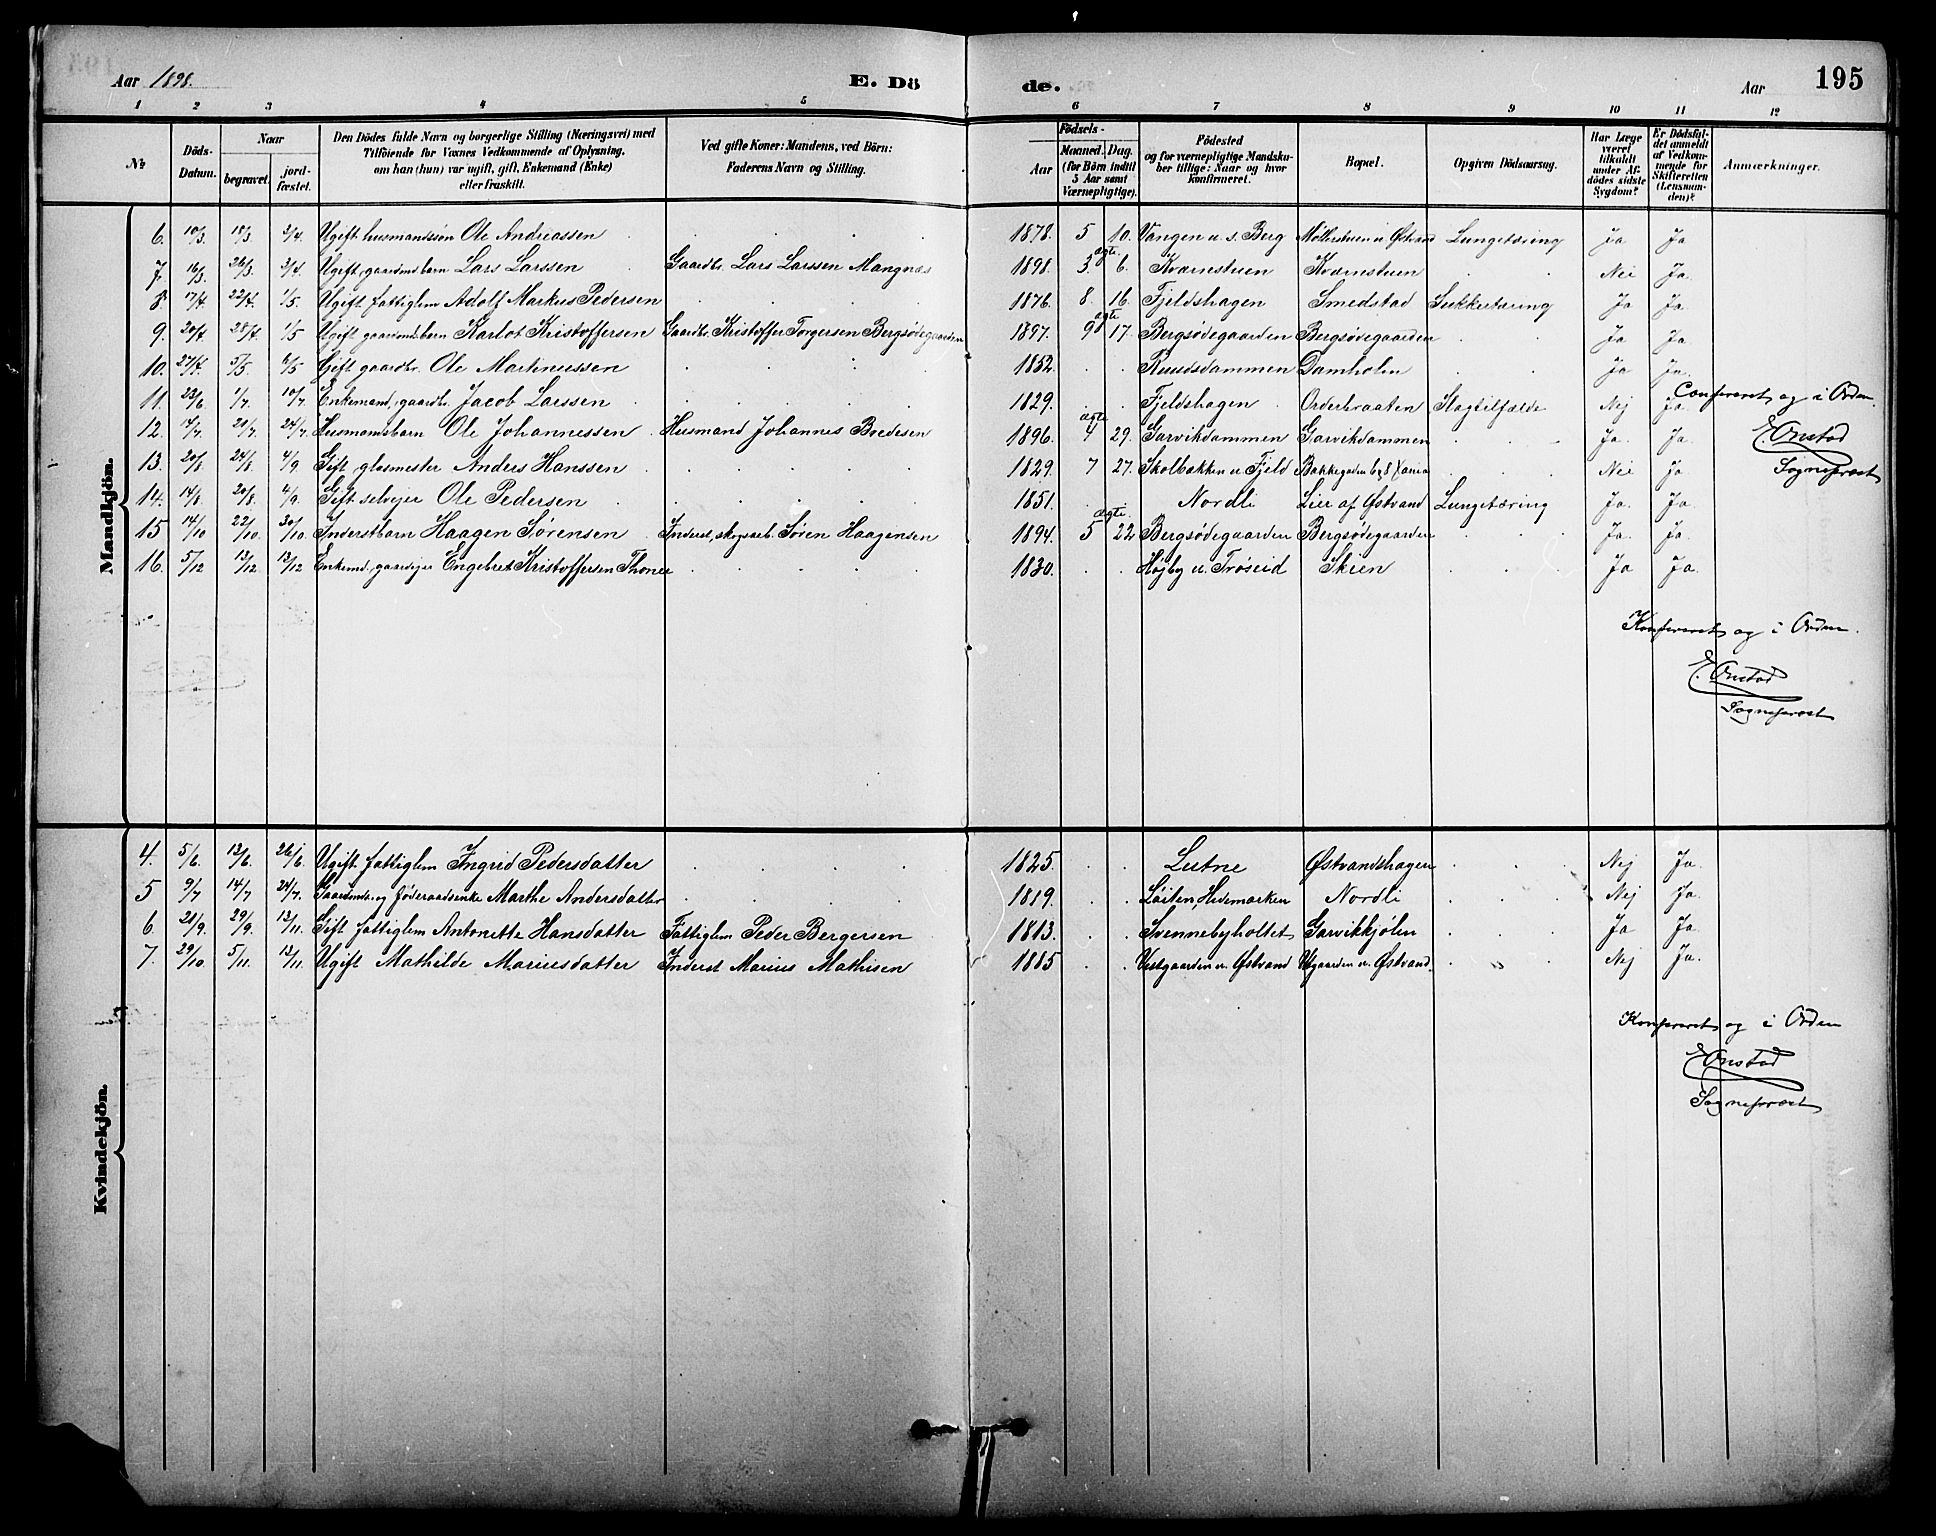 Aar 1898. E. Dö de. Aar 195
1 2 3 4 5 6 7 8 9 10 11 12
№ Döds-Datum. Naar begravet. jord-fæstet. Den Dödes fulde Navn og borgerlige Stilling (Næringsvei) med Tilföiende for Voxnes Vedkommende af Oplysning, om han (hun) var ugift, gift, Enkemand (Enke) eller fraskilt. Ved gifte Koner: Mandens, ved Börn: Faderens Navn og Stilling. Födsels- Aar Maaned. Dag. (for Börn indtil 5 Aar samt Værnepligtige). Födested og for værnepligtige Mandsku-ber tillige: Naar og hvor konfirmeret. Bopæl. Opgiven Dödsaarsag. Har Læge været tilkaldt under Af-dödes sidste Sygdom? Er Dödsfal-det anmeldt af Vedkom-mende for Skifteretten (Lensman-den)? Anmærkninger.
Mandkjön.
6. 10/3. 18/3. 2/4. Ugift husmandssøn Ole Andreassen 1878. 5 10. Vangen u. s. Berg Møllerstuen u. Østvand Lungetæring Ja Ja
7. 16/3. 26/3. 2/4. Ugift gaardmdsbarn Lars Larssen Gaardbr. Lars Larssen Mangnæs 1898. 3. ægte. 6. Kværnstuen Kværnstuen Nei Ja.
8. 17/4. 22/4. 1/5 Ugift fattiglem Adolf Markus Pedersen 1876. 8. 16. Fjeldshagen Smedstad Sukkertæring Ja Ja
9. 20/4. 28/4. 1/5 Ugift gaardmdsbarn Karlot Kristoffersen Gaardbr. Kristoffer Torgersen Bergsødegaarden 1897. 9 ægte. 17. Bergsødegaarden Bergsødegaarden Ja Ja
10. 27/4. 5/5. 6/5 Gift gaardbr. Ole Martinussen 1852. Ruudsdammen Damholen Ja Ja.
11. 23/6. 1/7. 10/7 Enkemand, gaardbr. Jacob Larssen 1829. Fjeldshagen Orderbraaten Slagtilfælde Nej Ja Confereret og i Orden
12. 14/7. 20/7. 24/7. Husmandsbarn Ole Johannessen Husmand Johannes Boedesen 1896. ægte 4 29. Garvikdammen Garvikdammen Ja. Ja. E. Onstad
13. 20/8. 24/8. 4/9 Gift, glasmester Anders Hanssen 1829. 7 27. Skolbakken u. Fjeld Bakkegaden Xania Nei Ja Sogneprest
14. 14/8 20/8. 4/9 Gift selvejer Ole Pedersen 1851. Nordli Lier af Østvand Lungetæring Ja. Ja.
15 14/10 22/10. 30/10. Inderstbarn Haagen Sørensen Inderst, skogsarb. Søren Haagensen 1894. 5 ægte. 22 Bergsødegaarden Bergsødegaarden Ja. Ja.
16. 5/12 13/12. 13/12 Enkemd., gaardejer Engebret Kristoffersen Thoner 1830. Højby u. Trøseid Skien Ja Ja.
Konfereret og i Orden.
E. Onstad
Sogneprest
Kvindekjön.
4. 5/6. 12/6. 26/6. Ugift fattiglem Ingrid Pedersdatter 1825. Lutne Østvandshagen Nej Ja.
5 9/7 14/7 24/7. Gaardmds. og føderaadsenke Marthe Andersdatter 1819. Løiten, Hedemarken Nordli Nej Ja.
6. 21/9. 29/9. 13/11. Gift fattiglem Antonette Hansdatter Fattiglem Peder Bergersen 1813. Svennebyholtet Garvikkjølen Ja Ja.
7. 29/10. 5/11. 13/11. Ugift Mathilde Mariusdatter Inderst Marius Mathisen 1885 Vestgaarden u. Østvand Vgaarden u. Østvand. Nej Ja.
Konfereret og i Orden
E. Onstad
Sogneprest